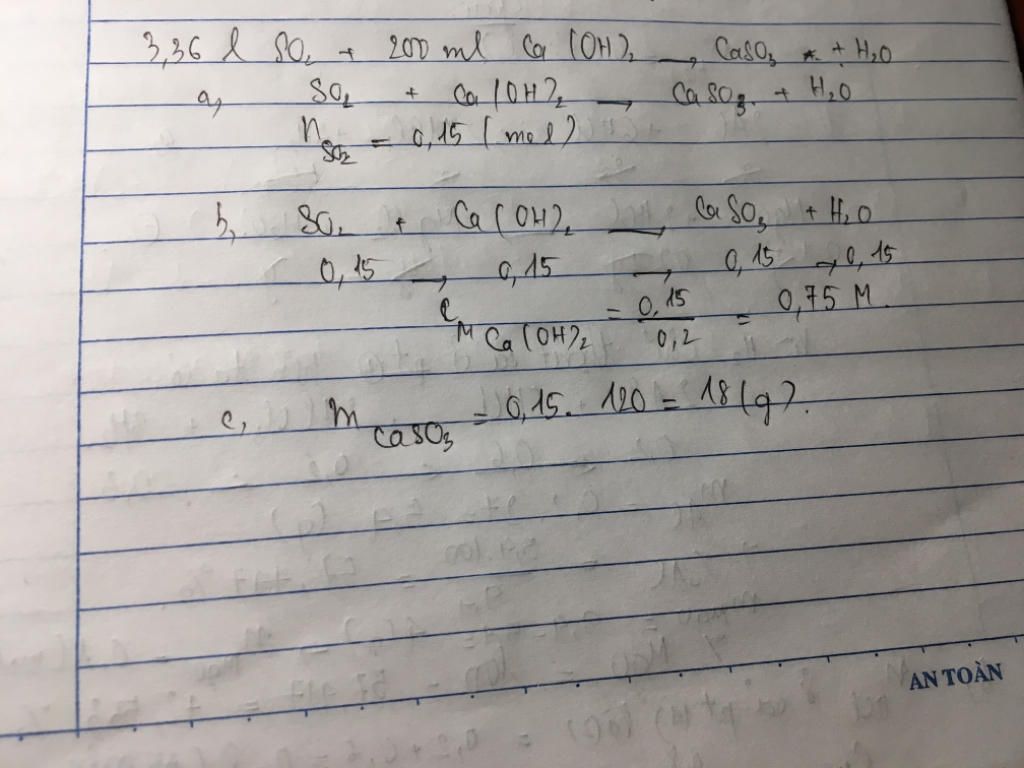 3,36 l SO₂ + 200 ml Ca(OH)₂ → CaSO₃ + H₂O
a, SO₂ + Ca(OH)₂ → CaSO₃ + H₂O
n SO₂ = 0,15 (mol)
b, SO₂ + Ca(OH)₂ → CaSO₃ + H₂O
0,15 → 0,15 → 0,15 → 0,15
C M Ca(OH)₂ = 0,15 / 0,2 = 0,75 M.
c, m CaSO₃ = 0,15. 120 = 18 (g).
AN TOÀN